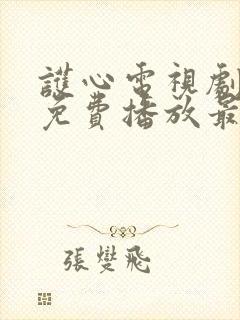 護心電視劇
免費播放最
張燮飛